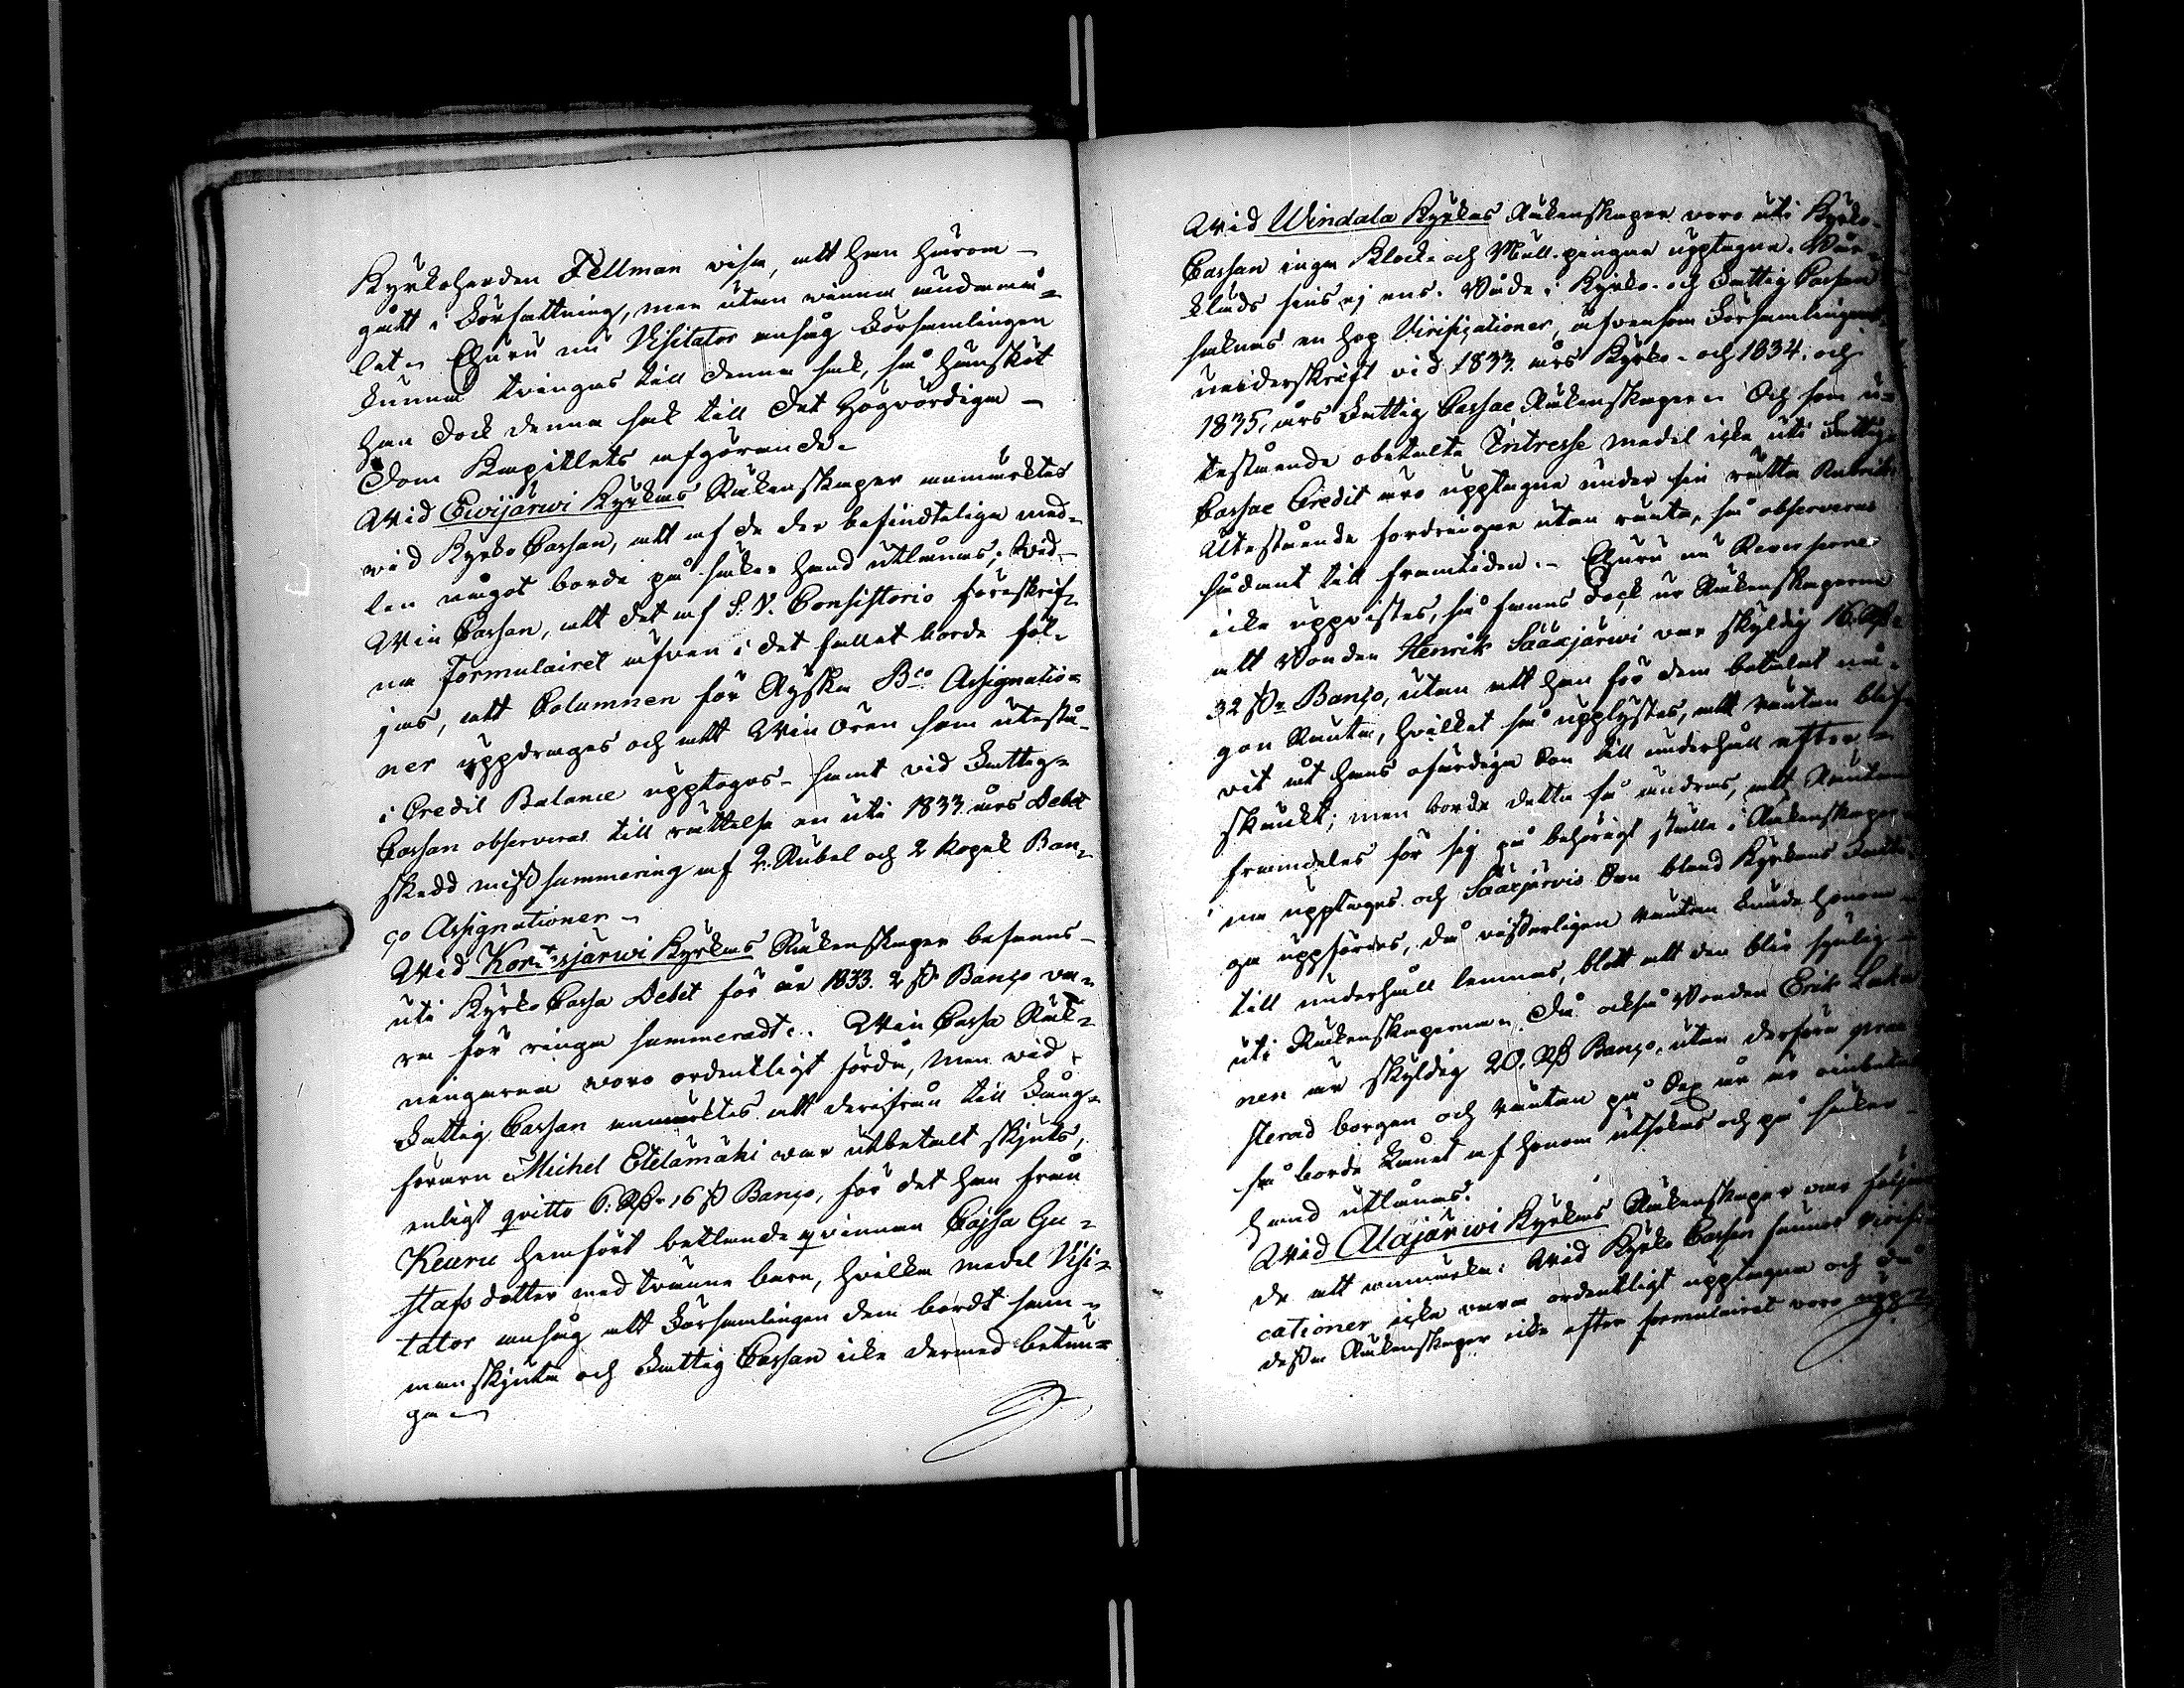 Kyrkoherden Fellman visa, att han härom-
gått i författning, men utan vinna ändamå-
let. Ehuru nu Visitator ansåg Församlingen
kunna tvingas till denna sak, så hänsköt
han dock denna sak till det Högvördiga
Dom Kapitlets afgörande.
Wid Ewijärwi Kyrkas Räkenskaper anmärktes
vid Kyrko Cassan, att af de der befindtelige med-
len något borde på säker hand utlånas; Wid
Win Cassan, att det af S. V. Consistorio föreskrif-
na Formulairet äfven i det fallet borde föl-
jas, att Columnen för Ryska Bco Assignatio-
ner uppdrages och att Win ören som utestå-
i Credit Balance upptogos - samt vid Fattig-
Cassan observeras till rättelse en uti 1833 års Debet
skedd missummering af 2 Rubel och 2 Kopek Ban-
co Assignationer -
Wid Kortesjärwi Kyrkas Räkenskaper befanns
uti Kyrko Cassa Debet för år 1833. 2 ß Banco va-
ra för ringa summeradt. Win Cassa Räk-
ningarna voro ordentligt förda, men vid
Fattig Cassan anmärktes att derifrån till Fång-
föraren Michel Etelämäki var utbetalt skjuts,
enligt qvitto 6: Rß 16 ß Banco, för det han från
Keuru hemfört betlande qvinnan Cajsa Gu-
stafs dotter med tvänne barn, hvilka medel Visi-
tator ansåg att Församlingen dem bordt sam-
manskjuta och Fattig Cassan icke dermed betun-
ga
Wid Windala Kyrkas Räkenskaper voro uti Kyrko-
Cassan inga Klock- och Mull-pengar upptagne.
ej ens. Både i Kyrko- och Fattig Cassan
saknas en hop Virificationer, äfvensom Församlingens
underskrift vid 1833 års Kyrko- och 1834, och
1835, års Fattig Cassae Räkenskaper. Och som u-
testående obetalte Intresse medel icke uti Fattig
Cassae Credit äro upptagne under sin rätta Rubrik:
Utestående fordringar utan ränta, så observeras
sådant till framtiden. - Ehuru nu Reverserne
icke uppvistes, så fanns dock ur Räkenskaperna
att Bonden Henrik Sääxjärwi var skyldig 16 Rß
32 ß Banco, utan att han för dem betalat nå-
gon Ränta, hvilket så upplystes, att räntan blif-
vit åt hans ofärdiga Son till underhåll efter-
skänkt; men borde detta så ändras, att Räntan
framdeles för sig på behörigt ställe i Räkenskaper-
na upptages och Sääxjärvis Son bland Kyrkans Fatti-
ga uppföres, då visserligen räntan kunde honom
till underhåll lemnas, blott att den blir synlig
uti Räkenskaperna. Då också Bonden Erik
nen är skyldig 20. Rß Banco, utan derföre præ-
sterad borgen och räntan på Sex år är oinbetald
så borde Lånet af honom utsökas och på säker
hand utlånas.
Wid Alajärwi Kyrkas Räkenskaper var följan
de att anmärka: Wid Kyrko Cassan funnos Virifi-
cationer icke vara ordentligt upptagne och då
dessa Räkenskaper icke efter formulairet voro upp-